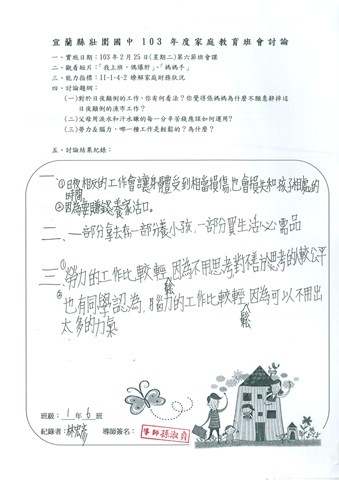 宜蘭縣壯圍國中 103 年度家庭教育班會討論
一、實施日期：103年2月25日(星期二)第六節班會課
二、觀看短片：「我上班，偶爆肝」、「媽媽手」
三、能力指標：II-1-4-2 瞭解家庭財務狀況
四、討論題綱：
(一)對於日夜顛倒的工作，你有何看法？你覺得張媽媽為什麼不願意辭掉這
日夜顛倒的漁市工作？
(二)父母用淚水和汗水賺的每一分辛苦錢應該如何運用？
(三)勞力＆腦力，哪一種工作是輕鬆的？為什麼？
五、討論結果紀錄：
一、①日夜相反的工作會讓身體受到相當損傷,也會損失和孩子相處的
時間
②因為要賺錢養家活口。
二、一部分拿去存一部分養小孩，一部分買生活必需品
三、①勞力的工作比較輕鬆,因為不用思考對不善於思考的人較公平
②也有同學認為,腦力的工作比較輕鬆,因為可以不用出
太多的力氣
班級：1年6班
紀錄者：林宏彥 導師簽名：導師孫淑貞